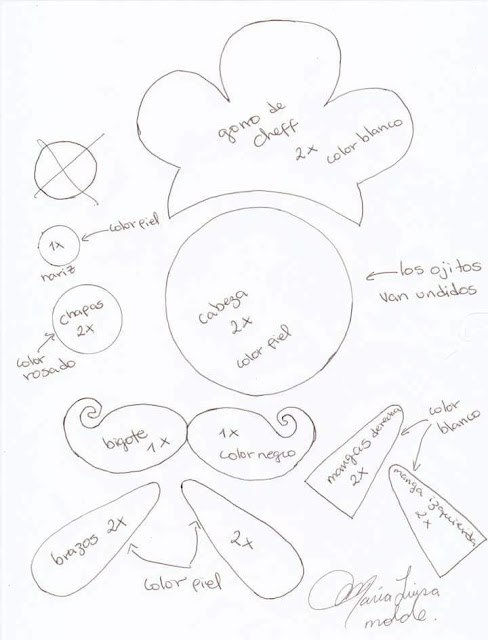 gorro de
cheff
2x color blanco
1x
color piel
nariz
chapas
2x
color
rosado
cabeza
2x
color piel
los ojitos
van undidos
bigote
1x
1x
color negro
mangas derecha
2x
color
blanco
manga izquierda
2x
brazos 2x
2x
color piel
María Luisa
molde.